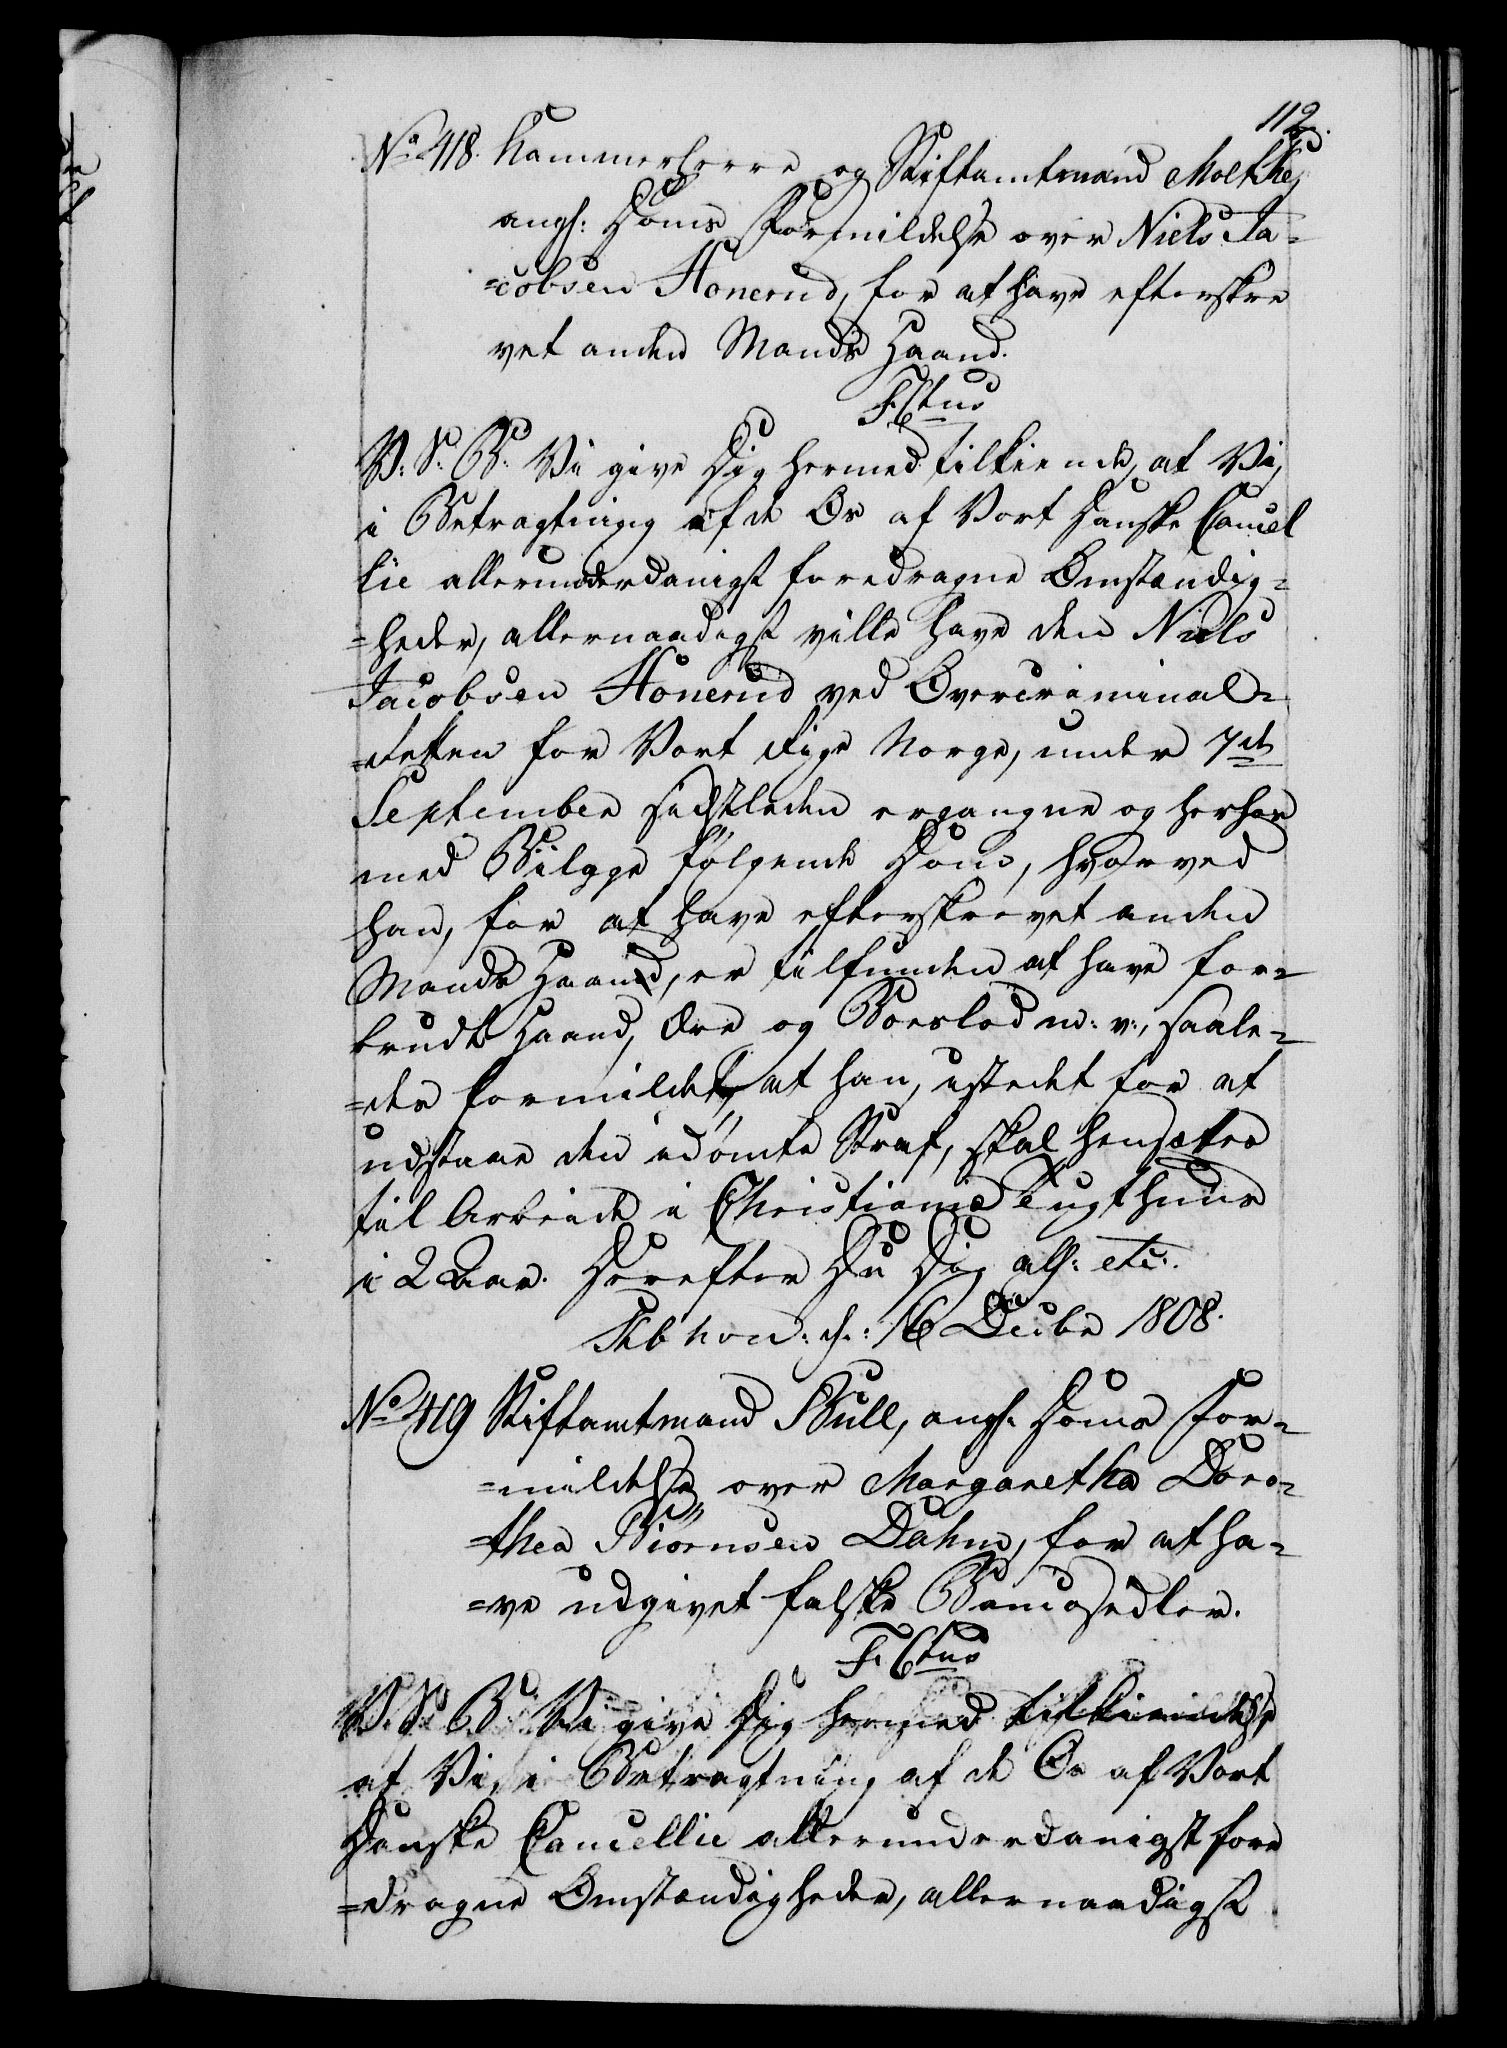 112.
No 418. Kammerherre og Stiftamtmand Moltke,
angl: Doms Formildelse over Niels Ja-
=cobsen Honerud, for at have efterskre
vet anden Mands Haand.
F. 6tus
V: S: G: Vi give Dig hermed tilkiende, at Vi,
i Betragtning af de Os af Vort Danske Cancel
lie allerunderdanigst foredragne Omstændig-
=heder, allernaadigst ville have den Niels
Jacobsen Honerud ved Overcriminal-
=retten for Vort Rige Norge, under 7de
September sidstleden ergangne og herhos
med Bilage følgende Dom, hvorved
han, for at have efterskrevet anden
Mands Haand, er tilfunden at have for-
brudt Haand, Ære og Boeslod m: v:, saale-
=des formildet, at han, istedet for at
udstaae den idømte Straf, skal hensættes
til Arbeide i Christiania Tugthuus
i 2 Aar. Derefter Du Dig all: etc:.
Kbhvn: d: 16 Decbr 1808.
No 419 Stiftamtmand Bull, angl. Doms For-
=mildelse over Margaretha Doro-
=thea Biørnsen Dahm, for at ha-
=ve udgivet falske Bancosedler.
F. 6tus
V. S. G. Vi give Dig hermed tilkiende,
at Vi, i Betragtning af de Os af Vort
Danske Cancellie allerunderdanigst fore
=dragne Omstændigheder, allernaadigst